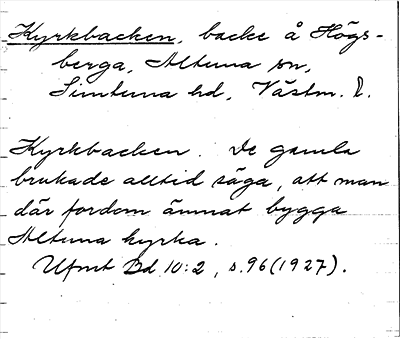 Kyrkbacken, backe å Högs-
berga, Altuna sn,
Simtuna hd, Västm. l.
Kyrkbacken. De gamla
brukade alltid säga, att man
där fordom ämnat bygga
Altuna kyrka.
Ufmt Bd 10:2, s. 96 (1927).